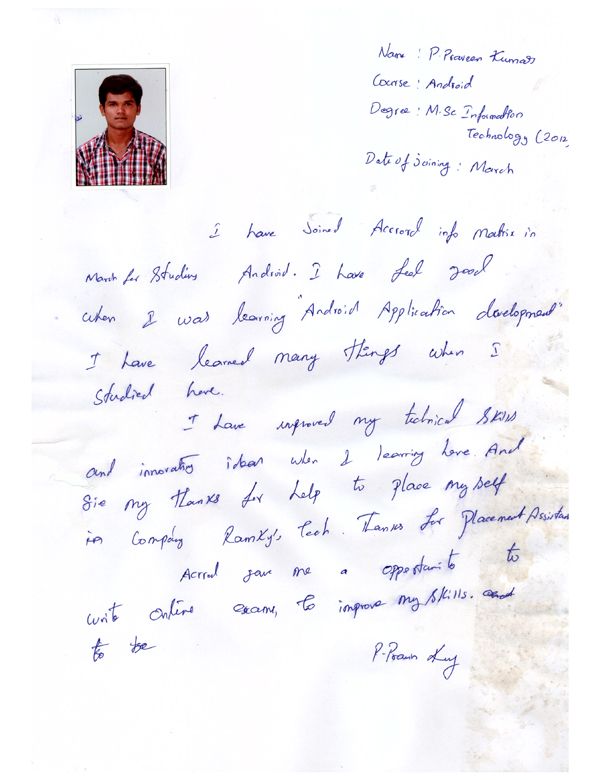 Name : P. Praveen Kumar
Course : Android
Degree : M.Sc Information
Technology (2012
Date of joining : March
I have Joined Accrord info Matrix in
March for Studins Android. I have feel good
when I was learning "Android Application development"
I have learned many things when I
studied here.
I have improved my technical skills
and innovating ideas when I learning here. And
Sir my thanks for help to place my self
in Company Ramky's Tech. Thanks for Placement Assistan
Accrod gave me a opportunite to
write online exams, to improve my skills. and
to be
P. Praven Kuy